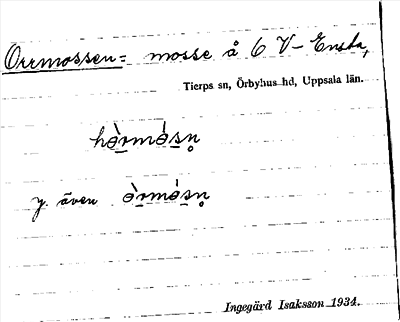 Orrmossen = mosse å 6 V - Enska,
Tierps sn, Örbyhus hd, Uppsala län.
hòrmósn̥
y. även òrmósn̥
Ingegärd Isaksson 1934.